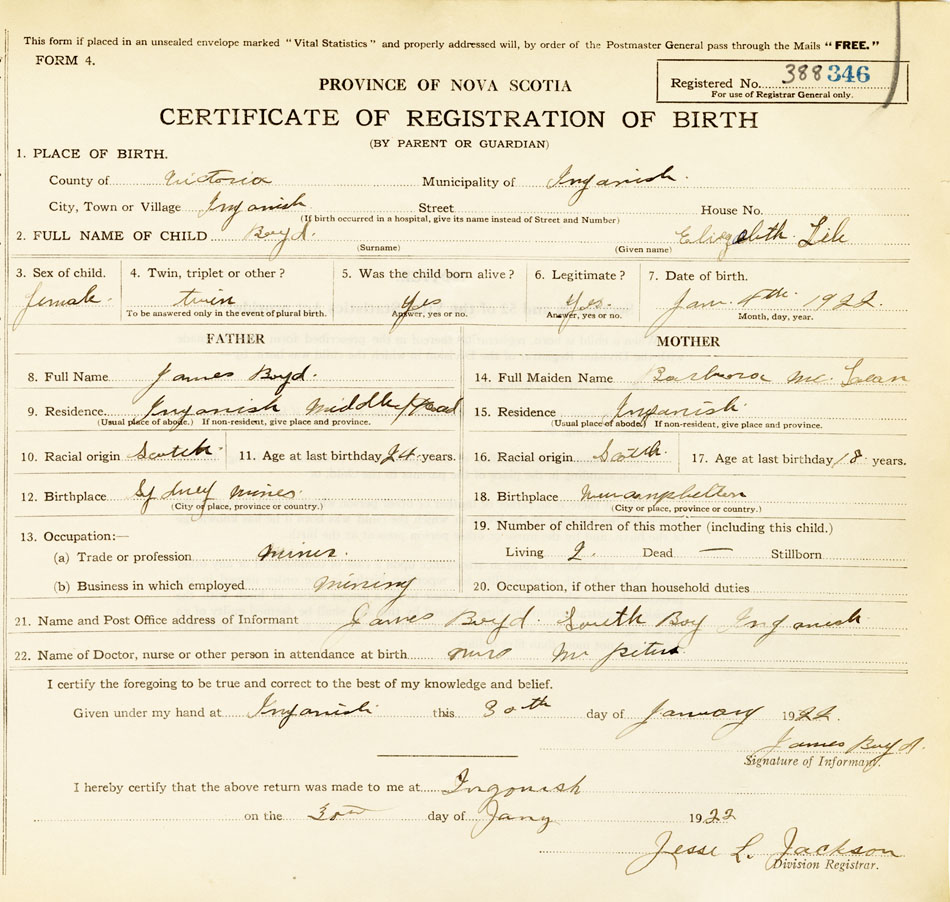 This form if placed in an unsealed envelope marked "Vital Statistics" and properly addressed will, by order of the Postmaster General pass through the Mails "FREE."
FORM 4.
PROVINCE OF NOVA SCOTIA
Registered No. 388 346
For use of Registrar General only.
CERTIFICATE OF REGISTRATION OF BIRTH
(BY PARENT OR GUARDIAN)
1. PLACE OF BIRTH.
County of Victoria Municipality of Inganish.
City, Town or Village Inganish Street House No.
(If birth occurred in a hospital, give its name instead of Street and Number)
2. FULL NAME OF CHILD Boyd. Elizabeth
(Surname) (Given name)
3. Sex of child. 4. Twin, triplet or other? 5. Was the child born alive? 6. Legitimate? 7. Date of birth.
female. twin Yes Yes. Jan. 4th. 1922.
To be answered only in the event of plural birth. Answer, yes or no. Answer, yes or no. Month, day, year.
FATHER MOTHER
8. Full Name James Boyd. 14. Full Maiden Name Barbara Mc. Lean
9. Residence Inganish Middle Head 15. Residence Inganish.
(Usual place of abode.) If non-resident, give place and province. (Usual place of abode.) If non-resident, give place and province.
10. Racial origin Scotch. 11. Age at last birthday 24 years. 16. Racial origin Scotch. 17. Age at last birthday 18 years.
12. Birthplace Sydney Mines. 18. Birthplace
(City or place, province or country.) (City or place, province or country.)
13. Occupation:— 19. Number of children of this mother (including this child.)
(a) Trade or profession Living 2. Dead — Stillborn
(b) Business in which employed Mining 20. Occupation, if other than household duties
21. Name and Post Office address of Informant James Boyd. South Bay Inganish
22. Name of Doctor, nurse or other person in attendance at birth
I certify the foregoing to be true and correct to the best of my knowledge and belief.
Given under my hand at Inganish this 30th day of January 1922.
James Boyd.
Signature of Informant.
I hereby certify that the above return was made to me at Ingonish
on the 30th day of Jany 1922
Jesse L. Jackson
Division Registrar.